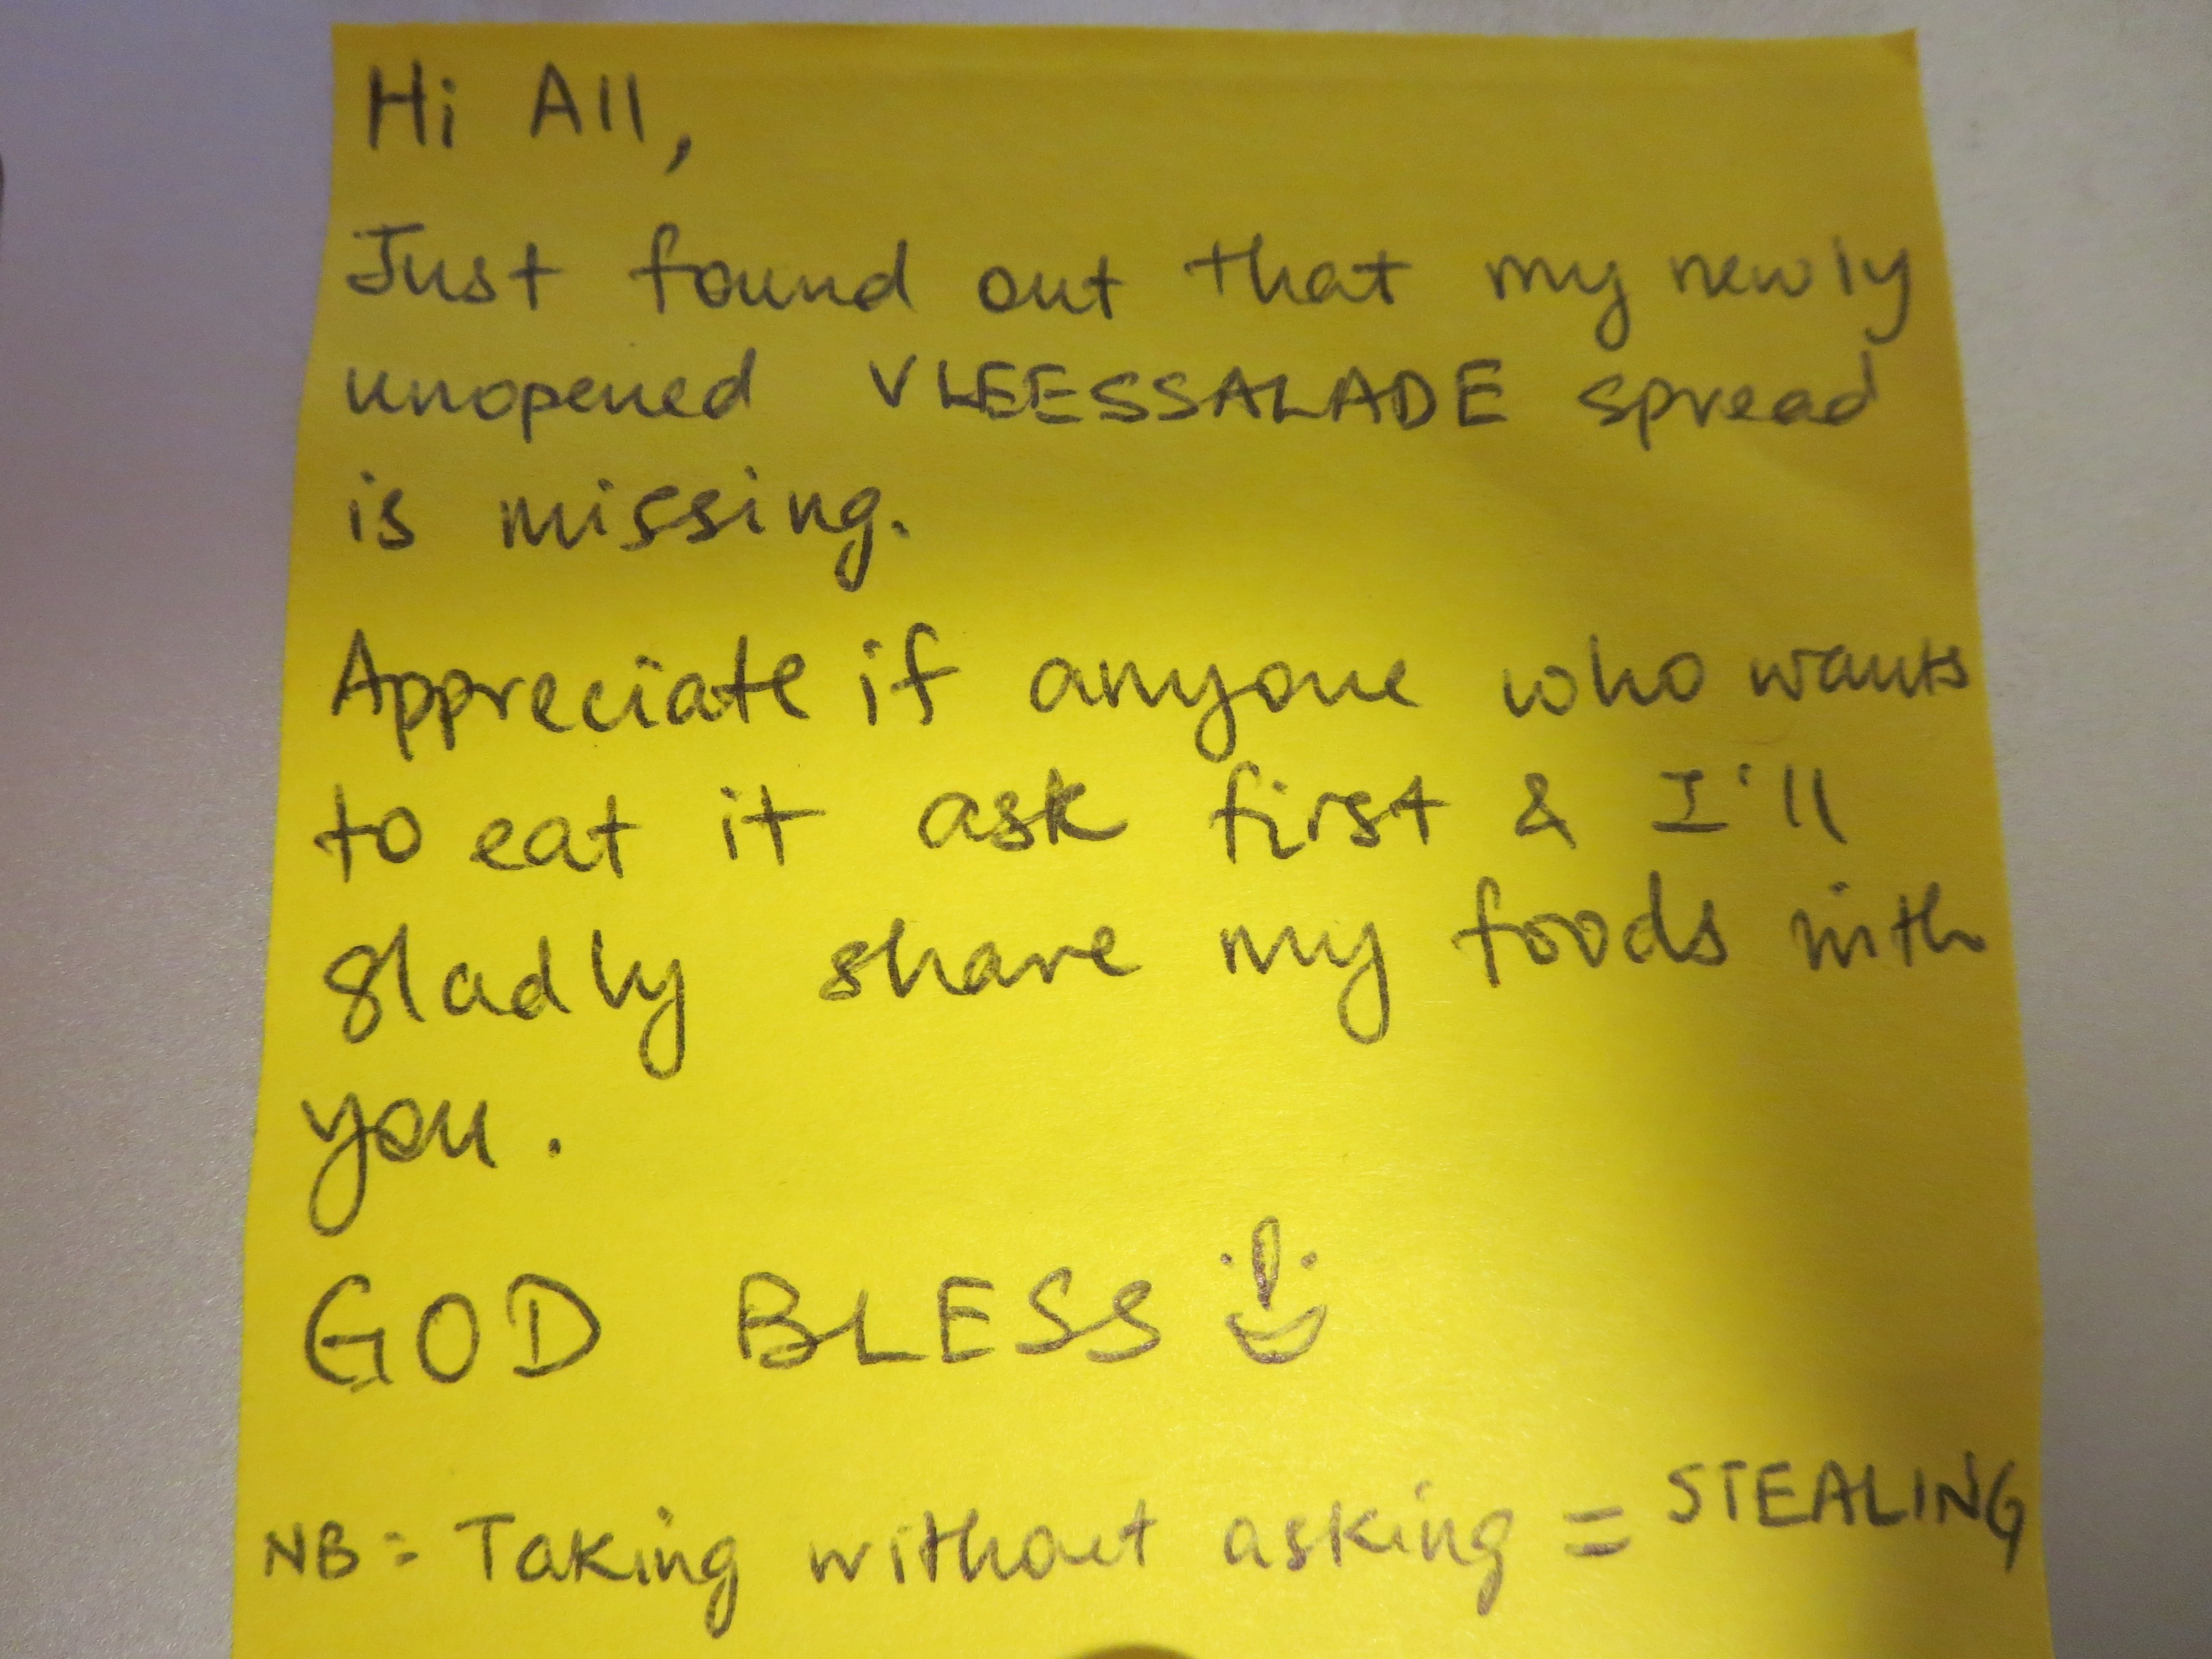 Hi All,
Just found out that my newly
unopened VLEESSALADE spread
is missing.
Appreciate if anyone who wants
to eat it ask first & I'll
gladly share my foods with
you.
GOD BLESS
NB: Taking without asking = STEALING